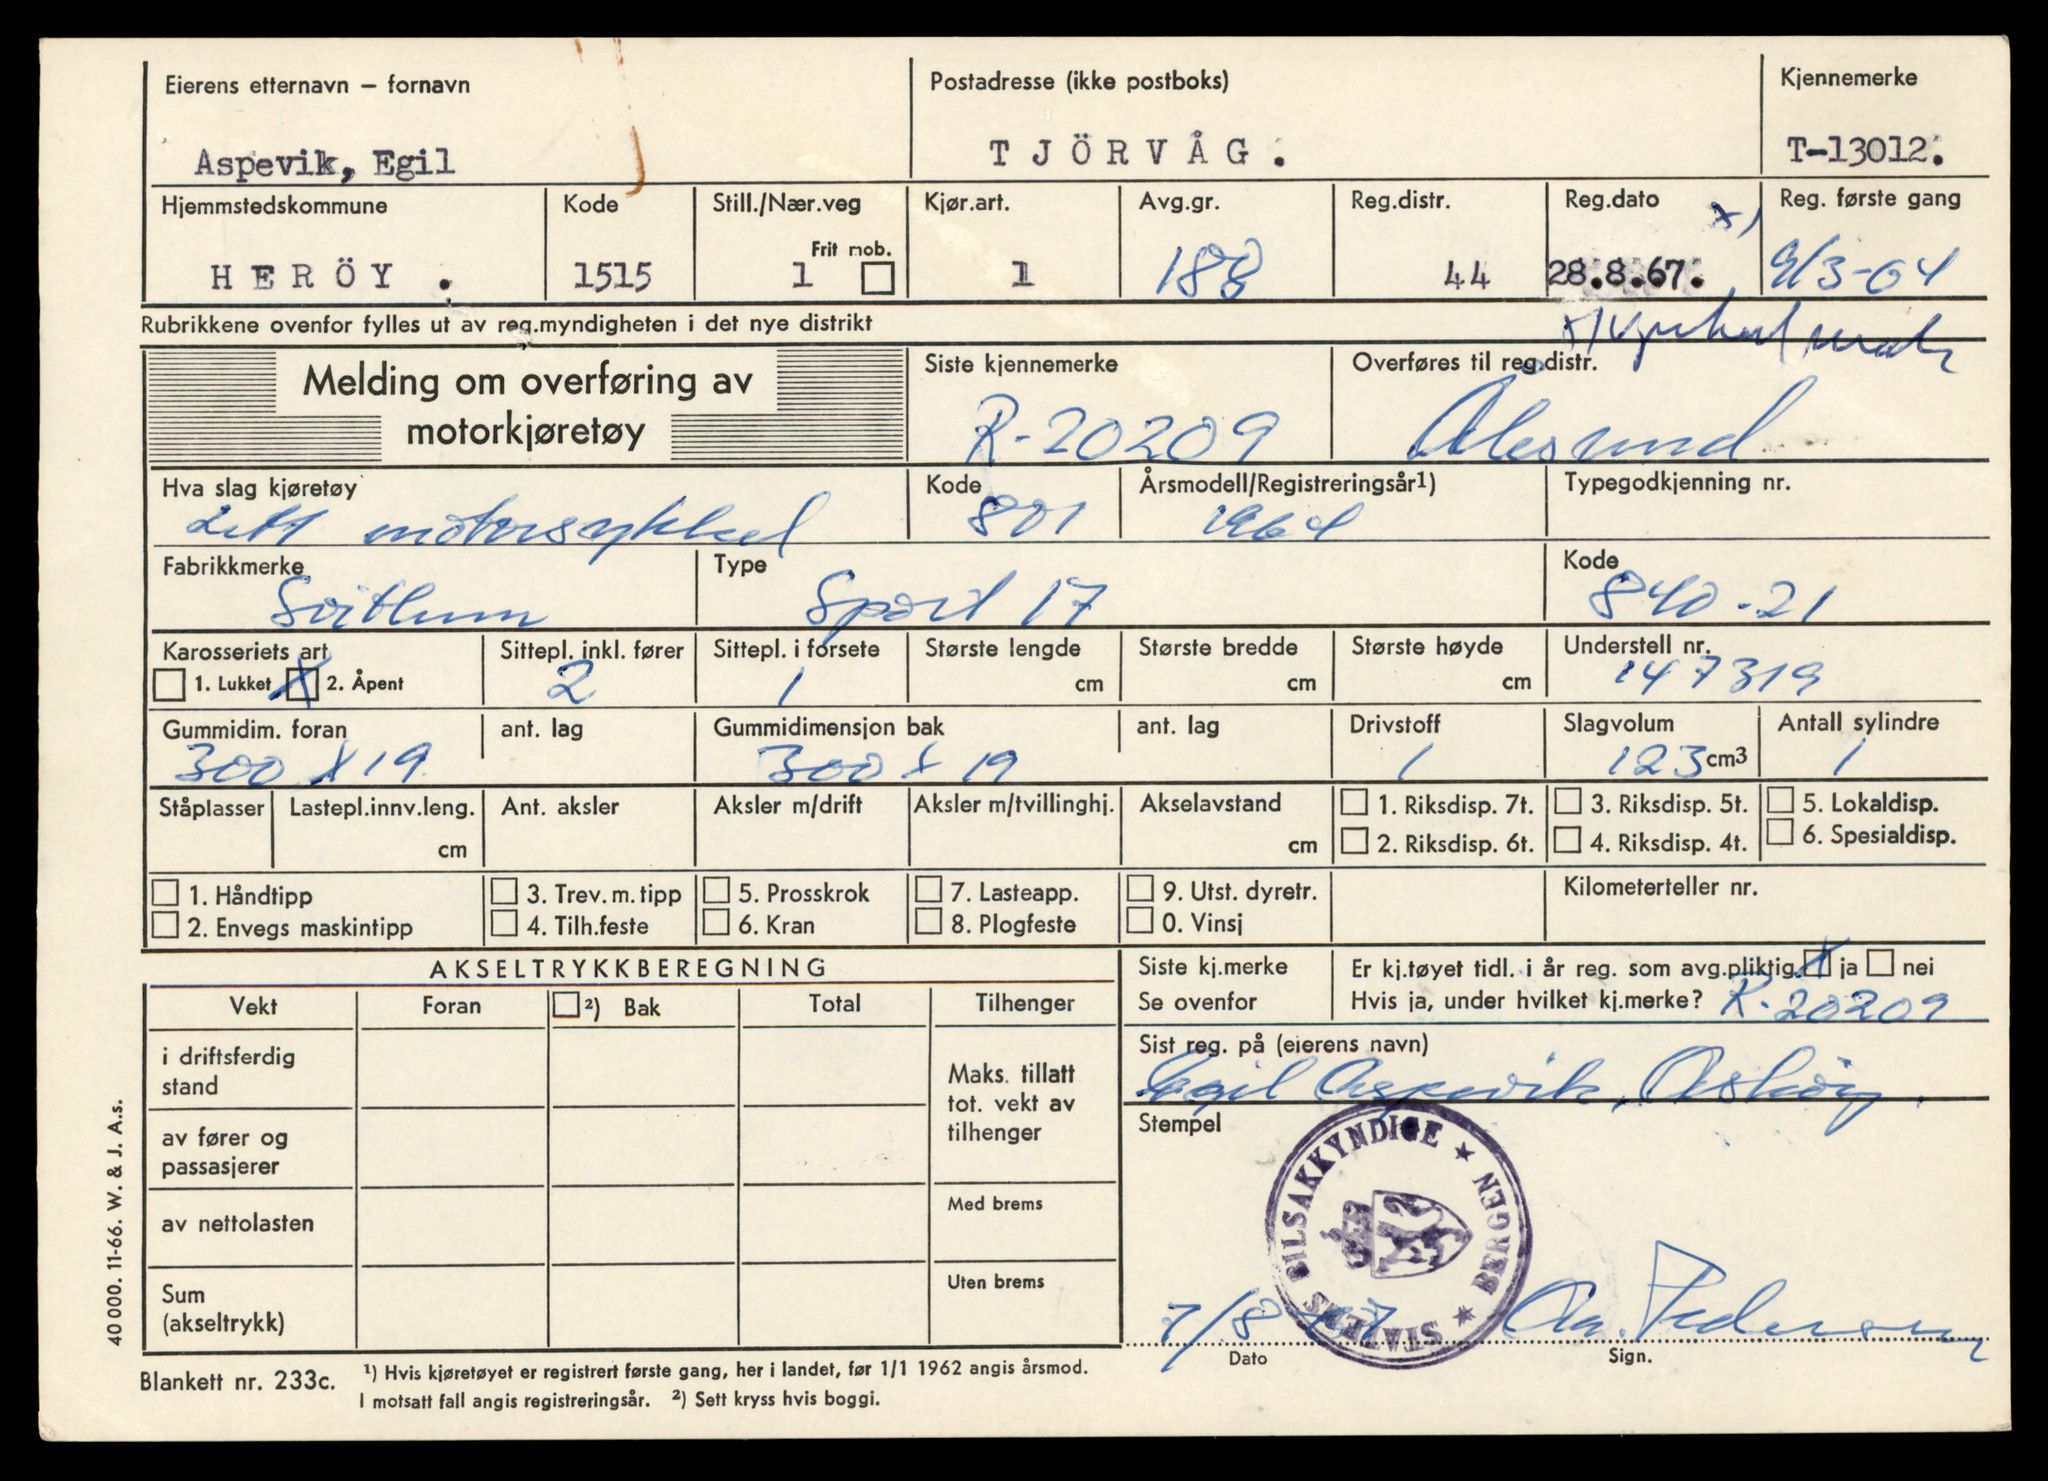 Eierens etternavn – fornavn
Postadresse (ikke postboks)
Kjennemerke
Aspevik, Egil
TJÖRVÅG.
T-13012.
Hjemmstedskommune
Kode
Still./Nær.veg
Kjør.art.
Avg.gr.
Reg.distr.
Reg.dato
x)
Reg. første gang
HERÖY .
1515
1
Frit mob.
1
188
44
28.8.67.
9/3-64
Rubrikkene ovenfor fylles ut av reg.myndigheten i det nye distrikt
Melding om overføring av
motorkjøretøy
Siste kjennemerke
R-20209
Overføres til reg.distr.
Ålesund
Hva slag kjøretøy
Lett motorsykkel
Kode
801
Årsmodell/Registreringsår1)
1964
Typegodkjenning nr.
Fabrikkmerke
Svithun
Type
Sport 17
Kode
840-21
Karosseriets art
1. Lukket X 2. Åpent
Sittepl. inkl. fører
2
Sittepl. i forsete
1
Største lengde
cm
Største bredde
cm
Største høyde
cm
Understell nr.
147319
Gummidim. foran
300 x 19
ant. lag
Gummidimensjon bak
300 x 19
ant. lag
Drivstoff
1
Slagvolum
123 cm3
Antall sylindre
1
Ståplasser
Lastepl.innv.leng.
cm
Ant. aksler
Aksler m/drift
Aksler m/tvillinghj.
Akselavstand
cm
1. Riksdisp. 7t.
2. Riksdisp. 6t.
3. Riksdisp. 5t.
4. Riksdisp. 4t.
5. Lokaldisp.
6. Spesialdisp.
1. Håndtipp
2. Envegs maskintipp
3. Trev. m. tipp
4. Tilh.feste
5. Prosskrok
6. Kran
7. Lasteapp.
8. Plogfeste
9. Utst. dyretr.
0. Vinsj
Kilometerteller nr.
AKSELTRYKKBEREGNING
Vekt
Foran
2) Bak
Total
Tilhenger
i driftsferdig
stand
av fører og
passasjerer
av nettolasten
Sum
(akseltrykk)
Maks. tillatt
tot. vekt av
tilhenger
Med brems
Uten brems
Siste kj.merke
Se ovenfor
Er kj.tøyet tidl. i år reg. som avg.pliktig. X ja nei
Hvis ja, under hvilket kj.merke? R-20209
Sist reg. på (eierens navn)
Egil Aspevik, Askøy.
Stempel
STATENS BILSAKKYNDIGE ★ BERGEN ★
7/8-67
Aa. Pedersen
Dato
Sign.
40 000. 111-66. W. & J. A.s.
Blankett nr. 233c.
1) Hvis kjøretøyet er registrert første gang, her i landet, før 1/1 1962 angis årsmod.
I motsatt fall angis registreringsår. 2) Sett kryss hvis boggi.